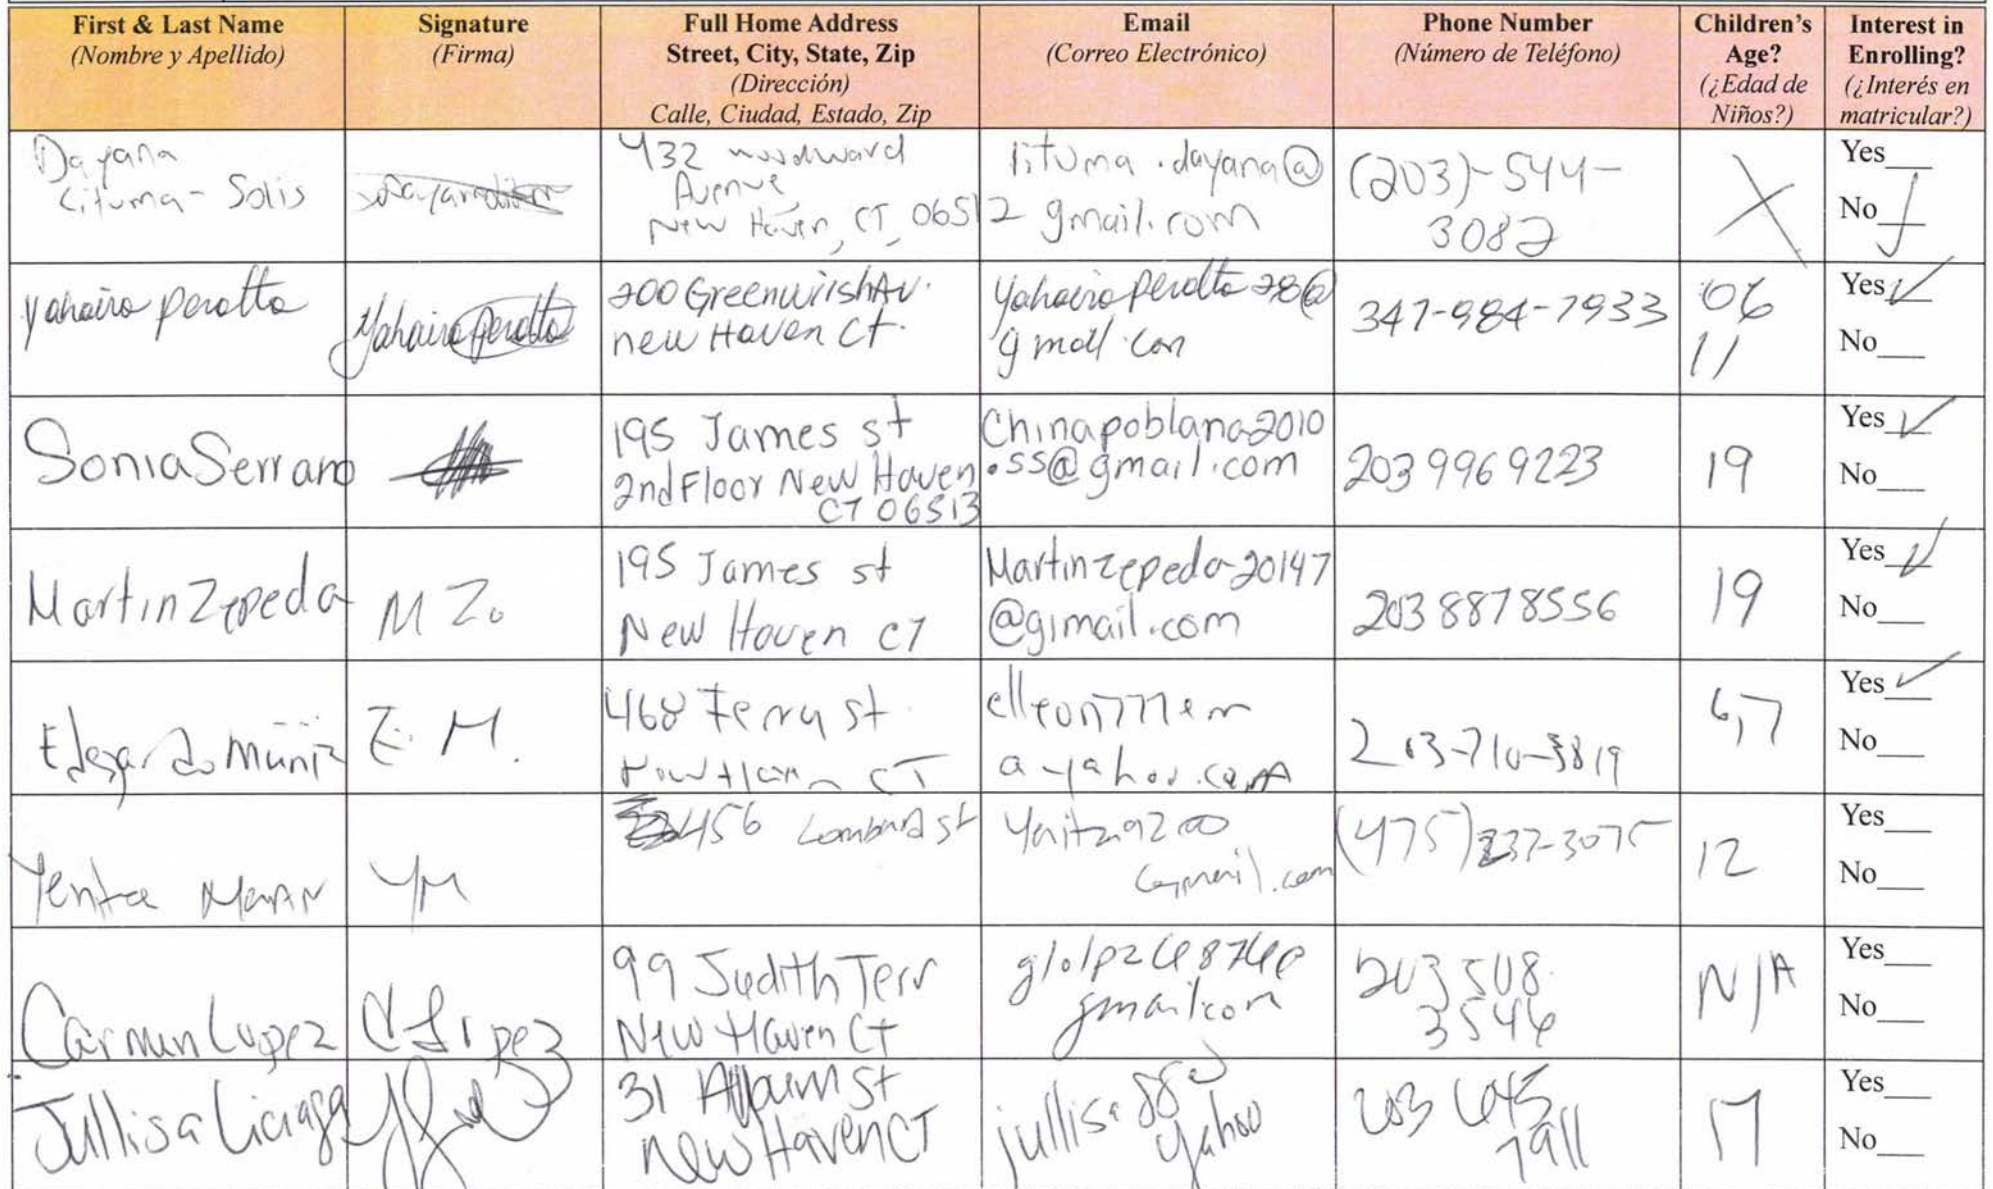 First & Last Name
(Nombre y Apellido)
Signature
(Firma)
Full Home Address
Street, City, State, Zip
(Dirección)
Calle, Ciudad, Estado, Zip
Email
(Correo Electrónico)
Phone Number
(Número de Teléfono)
Children's
Age?
(¿Edad de
Niños?)
Interest in
Enrolling?
(¿Interés en
matricular?)
Dayana
Lituma-Solis
432 woodward
Avenue,
New Haven, CT, 06512
lituma.dayana@
gmail.com
(203)-544-
3082
X
Yes
No
Yahaira peralta
Yahaira Peralta
200 Greenwish Av.
new Haven Ct.
Yahaira peralta 28@
347-984-7933
06
11
Yes ✓
No
Sonia Serrano
195 James st
2nd Floor New Haven
CT 06513
Chinapoblana2010
.ss@gmail.com
203 996 9223
19
Yes ✓
No
Martin Zepeda
M Z.
195 James st
New Haven CT
Martinzepeda20147
@gimail.com
203 8878556
19
Yes ✓
No
Edgardo Muñiz
E. M.
468 Ferry st
New Haven CT
203-710-3819
6,7
Yes ✓
No
YM
456 Lombard st
(475) 237-3075
12
Yes
No
Carmen Lopez
C Lopez
99 Judith Terr
New Haven Ct
203 508
3546
N/A
Yes
No
Jullisa Liciaga
31 St
New Haven CT
jullisa88@
yahoo
203 645
7911
17
Yes
No